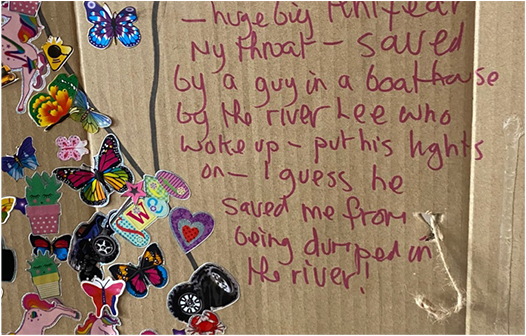 – huge big knife at
My throat – saved
by a guy in a boathouse
by the river Lee who
woke up – put his lights
on – I guess he
saved me from
being dumped in
the river!